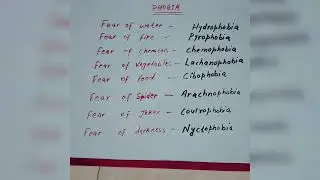 PHOBIA
Fear of water - Hydrophobia
Fear of fire - Pyrophobia
Fear of chemicals - Chemophobia
Fear of vegetables - Lachanophobia
Fear of food - Cibophobia
Fear of spider - Arachnophobia
Fear of joker - Coulrophobia
Fear of darkness - Nyctophobia